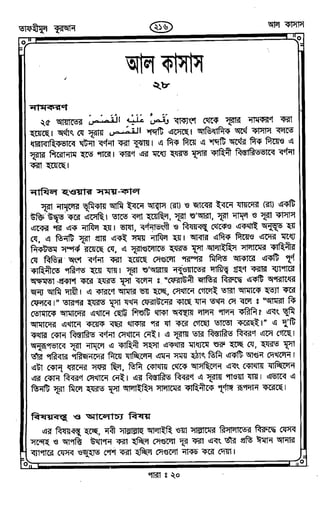 তাফহীমুল কুরআন
২১৬
আল কাসাস
আল কাসাস
২৮
নামকরণ
২৫ আয়াতের وَقَصَّ عَلَيْهِ الْقَصَصَ বাক্যাংশ থেকে সূরার নামকরণ করা
হয়েছে। অর্থাৎ যে সূরায় الْقَصَصَ শব্দটি এসেছে। আভিধানিক অর্থে কাসাস বলতে
ধারাবাহিকভাবে ঘটনা বর্ণনা করা বুঝায়। এ দিক দিয়ে এ শব্দটি অর্থের দিক দিয়েও এ
সূরার শিরোনাম হতে পারে। কারণ এর মধ্যে হযরত মূসার কাহিনী বিস্তারিতভাবে বর্ণনা
করা হয়েছে।
নাযিল হওয়ার সময়-কাল
সূরা নামলের ভূমিকায় আমি ইবনে আব্বাস (রা) ও জাবের ইবনে যায়েদের (রা) একটি
উক্তি উদ্ধৃত করে এসেছি। তাতে বলা হয়েছিল, সূরা শু'আরা, সূরা নামল ও সূরা কাসাস
একের পর এক নাযিল হয়। ভাষা, বর্ণনাভংগী ও বিষয়বস্তু থেকেও একথাই অনুভূত হয়
যে, এ তিনটি সূরা প্রায় একই সময় নাযিল হয়। আবার এদিক দিয়েও এদের মধ্যে
নিকটতম সম্পর্ক রয়েছে যে, এ সূরাগুলোতে হযরত মূসা আলাইহিস সালামের কাহিনীর
যে বিভিন্ন অংশ বর্ণনা করা হয়েছে সেগুলো পরস্পর মিলিত আকারে একটি পূর্ণ
কাহিনীতে পরিণত হয়ে যায়। সূরা শু'আরায় নবুওয়াতের দায়িত্ব গ্রহণ করার ব্যাপারে
অক্ষমতা প্রকাশ করে হযরত মূসা বলেন : "ফেরাউনী জাতির বিরুদ্ধে একটি অপরাধের
জন্য আমি দায়ী। এ কারণে আমার ভয় হচ্ছে, সেখানে গেলেই তারা আমাকে হত্যা করে
ফেলবে।" তারপর হযরত মূসা যখন ফেরাউনের কাছে যান তখন সে বলে : "আমরা কি
তোমাকে আমাদের এখানে ছোট্ট শিশুটি থাকা অবস্থায় লালন পালন করিনি? এবং তুমি
আমাদের এখানে কয়েক বছর থাকার পর যা করে গেছো তাতো করেছই।" এ দু'টি
কথার কোন বিস্তারিত বর্ণনা সেখানে নেই। এ সূরায় তার বিস্তারিত বিবরণ এসে গেছে।
অনুরূপভাবে সূরা নামলে এ কাহিনী সহসা একথার মাধ্যমে শুরু হচ্ছে যে, হযরত মূসা
তাঁর পরিবার পরিজনদের নিয়ে যাচ্ছিলেন এমন সময় হঠাৎ তিনি একটি আগুন দেখলেন।
এটা কোন্ ধরনের সফর ছিল, তিনি কোথায় থেকে আসছিলেন এবং কোথায় যাচ্ছিলেন
এর কোন বিবরণ সেখানে নেই। এর বিস্তারিত বিবরণ এ সূরায় পাওয়া যায়। এভাবে এ
তিনটি সূরা মিলে হযরত মূসা আলাইহিস সালামের কাহিনীকে পূর্ণাঙ্গ রূপদান করেছে।
বিষয়বস্তু ও আলোচ্য বিষয়
এর বিষয়বস্তু হচ্ছে, নবী সাল্লাল্লাহু আলাইহি ওয়া সাল্লামের রিসালাতের বিরুদ্ধে যেসব
সন্দেহ ও আপত্তি উত্থাপন করা হচ্ছিল সেগুলো দূর করা এবং তাঁর প্রতি ঈমান আনার
ব্যাপারে যেসব ওজুহাত পেশ করা হচ্ছিল সেগুলো নাকচ করে দেয়া।
পারা : ২০